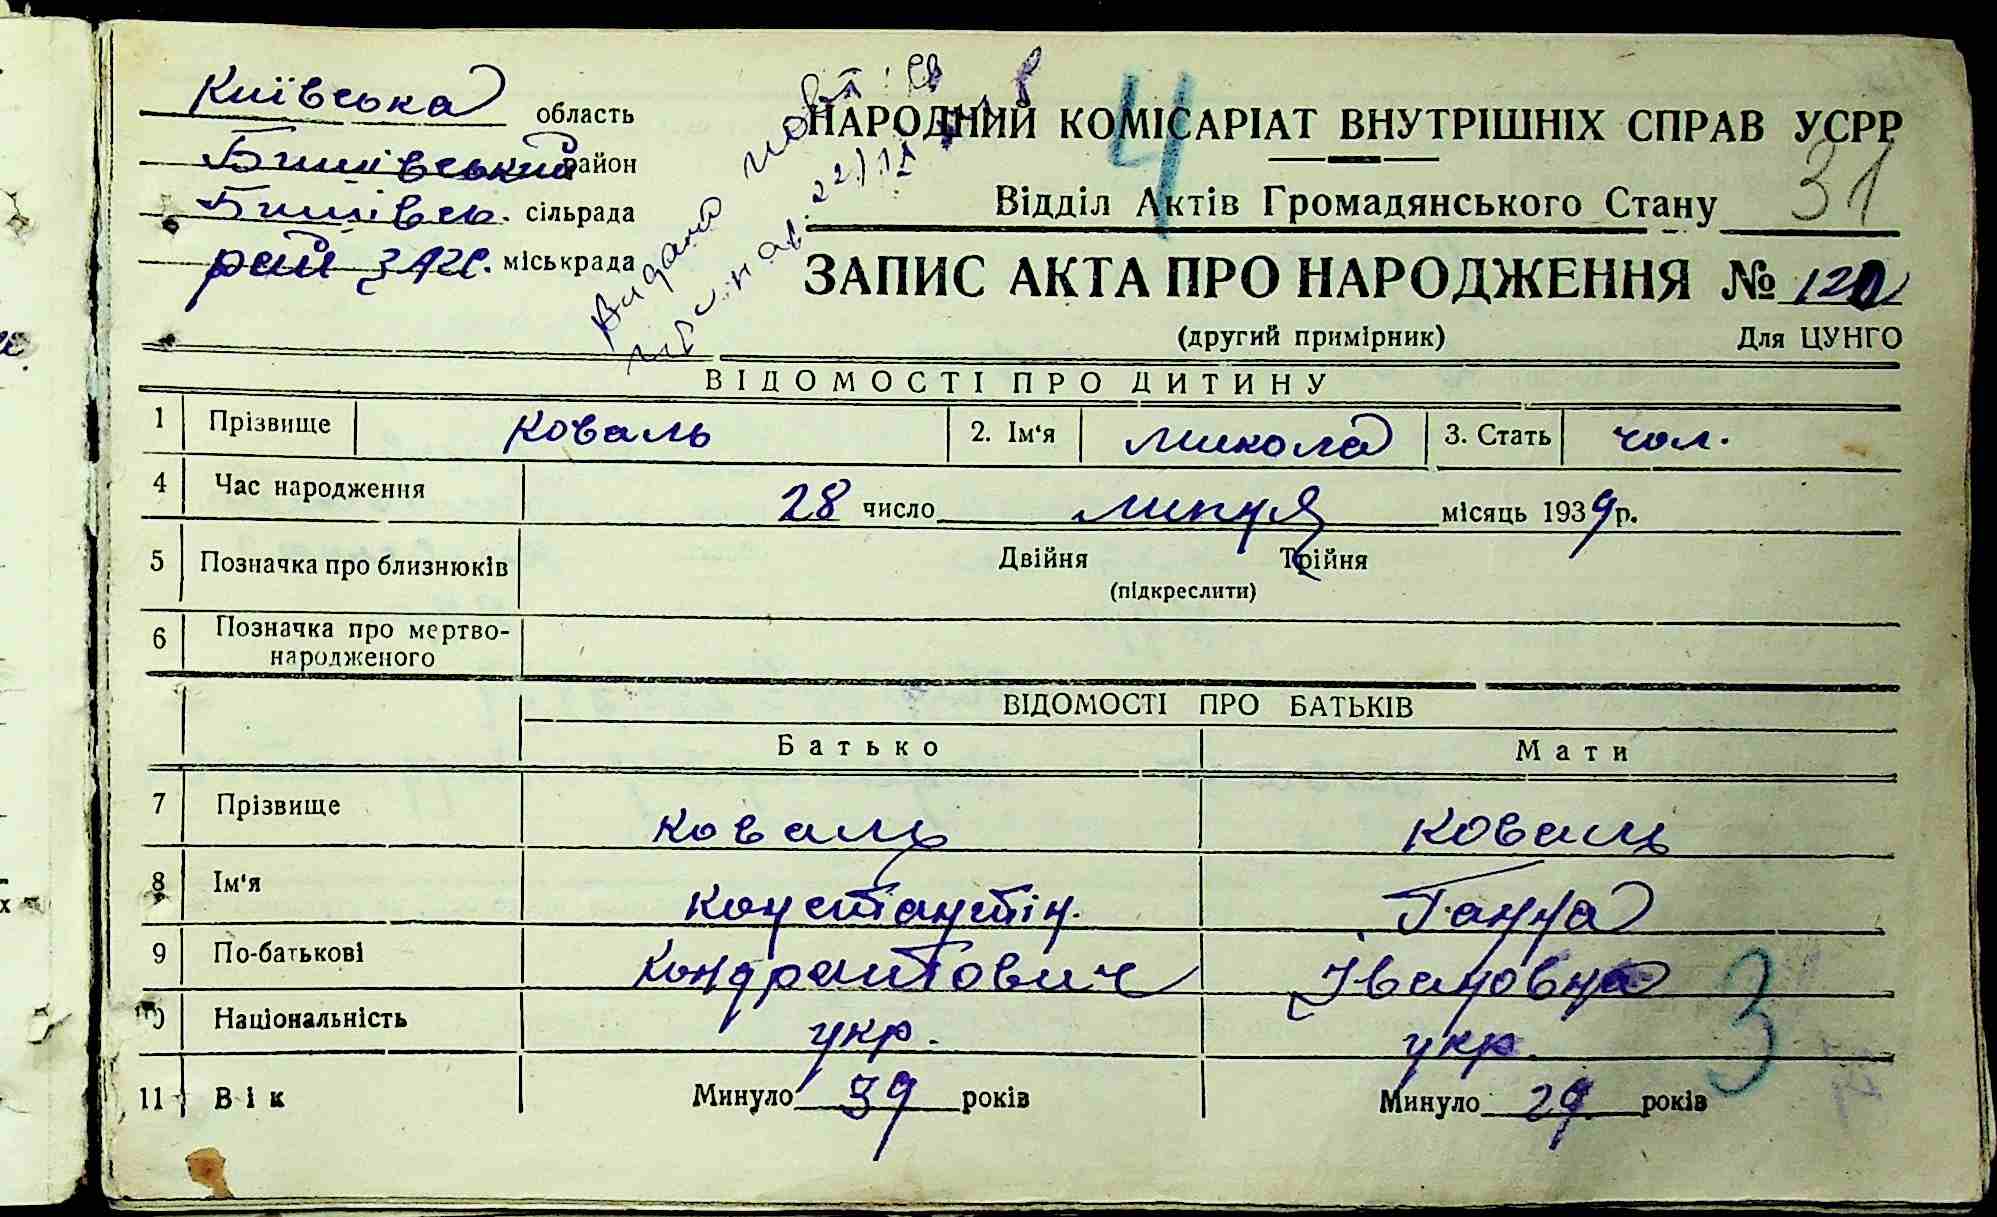 Київська область
Бишівський район
Бишівсь. сільрада
рай ЗАГС. міськрада
Видано
НАРОДНИЙ КОМІСАРІАТ ВНУТРІШНІХ СПРАВ УСРР
4
Відділ Актів Громадянського Стану 31
ЗАПИС АКТА ПРО НАРОДЖЕННЯ № 120
(другий примірник) Для ЦУНГО
ВІДОМОСТІ ПРО ДИТИНУ
1 Прізвище Коваль 2. Ім'я Микола 3. Стать чол.
4 Час народження 28 число липня місяць 1939 р.
5 Позначка про близнюків Двійня Трійня
(підкреслити)
6 Позначка про мертво-
народженого
ВІДОМОСТІ ПРО БАТЬКІВ
Батько Мати
7 Прізвище Коваль Коваль
8 Ім'я Констянтін. Ганна
9 По-батькові Кондратович Івановна
10 Національність укр. укр.
3
11 Вік Минуло 39 років Минуло 29 років